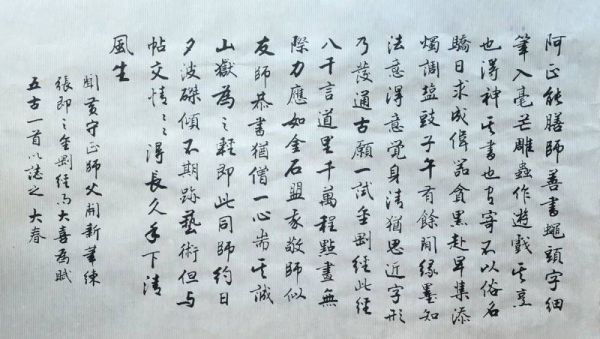 阿正能膳師善書蠅頭字細
筆入毫芒雕蟲作遊戲其烹
也得神其書也有寄不以俗名
驕日求成偉器貪黑赴早集添
燭調鹽豉子午有餘閒緣墨知
法意得意覺身清猶思近字形
乃發通古願一試金剛經此經
八千言道里千萬程點畫無
際力應如金石盟我敬師似
友師恭書猶僧一心耑其誠
山嶽為之輕即此同師約日
夕波磔傾不期跡藝術但與
帖交情々之得長久手下清
風生
聞黃守正師父開新筆練
張即之金剛經大喜為賦
五古一首以誌之 大春